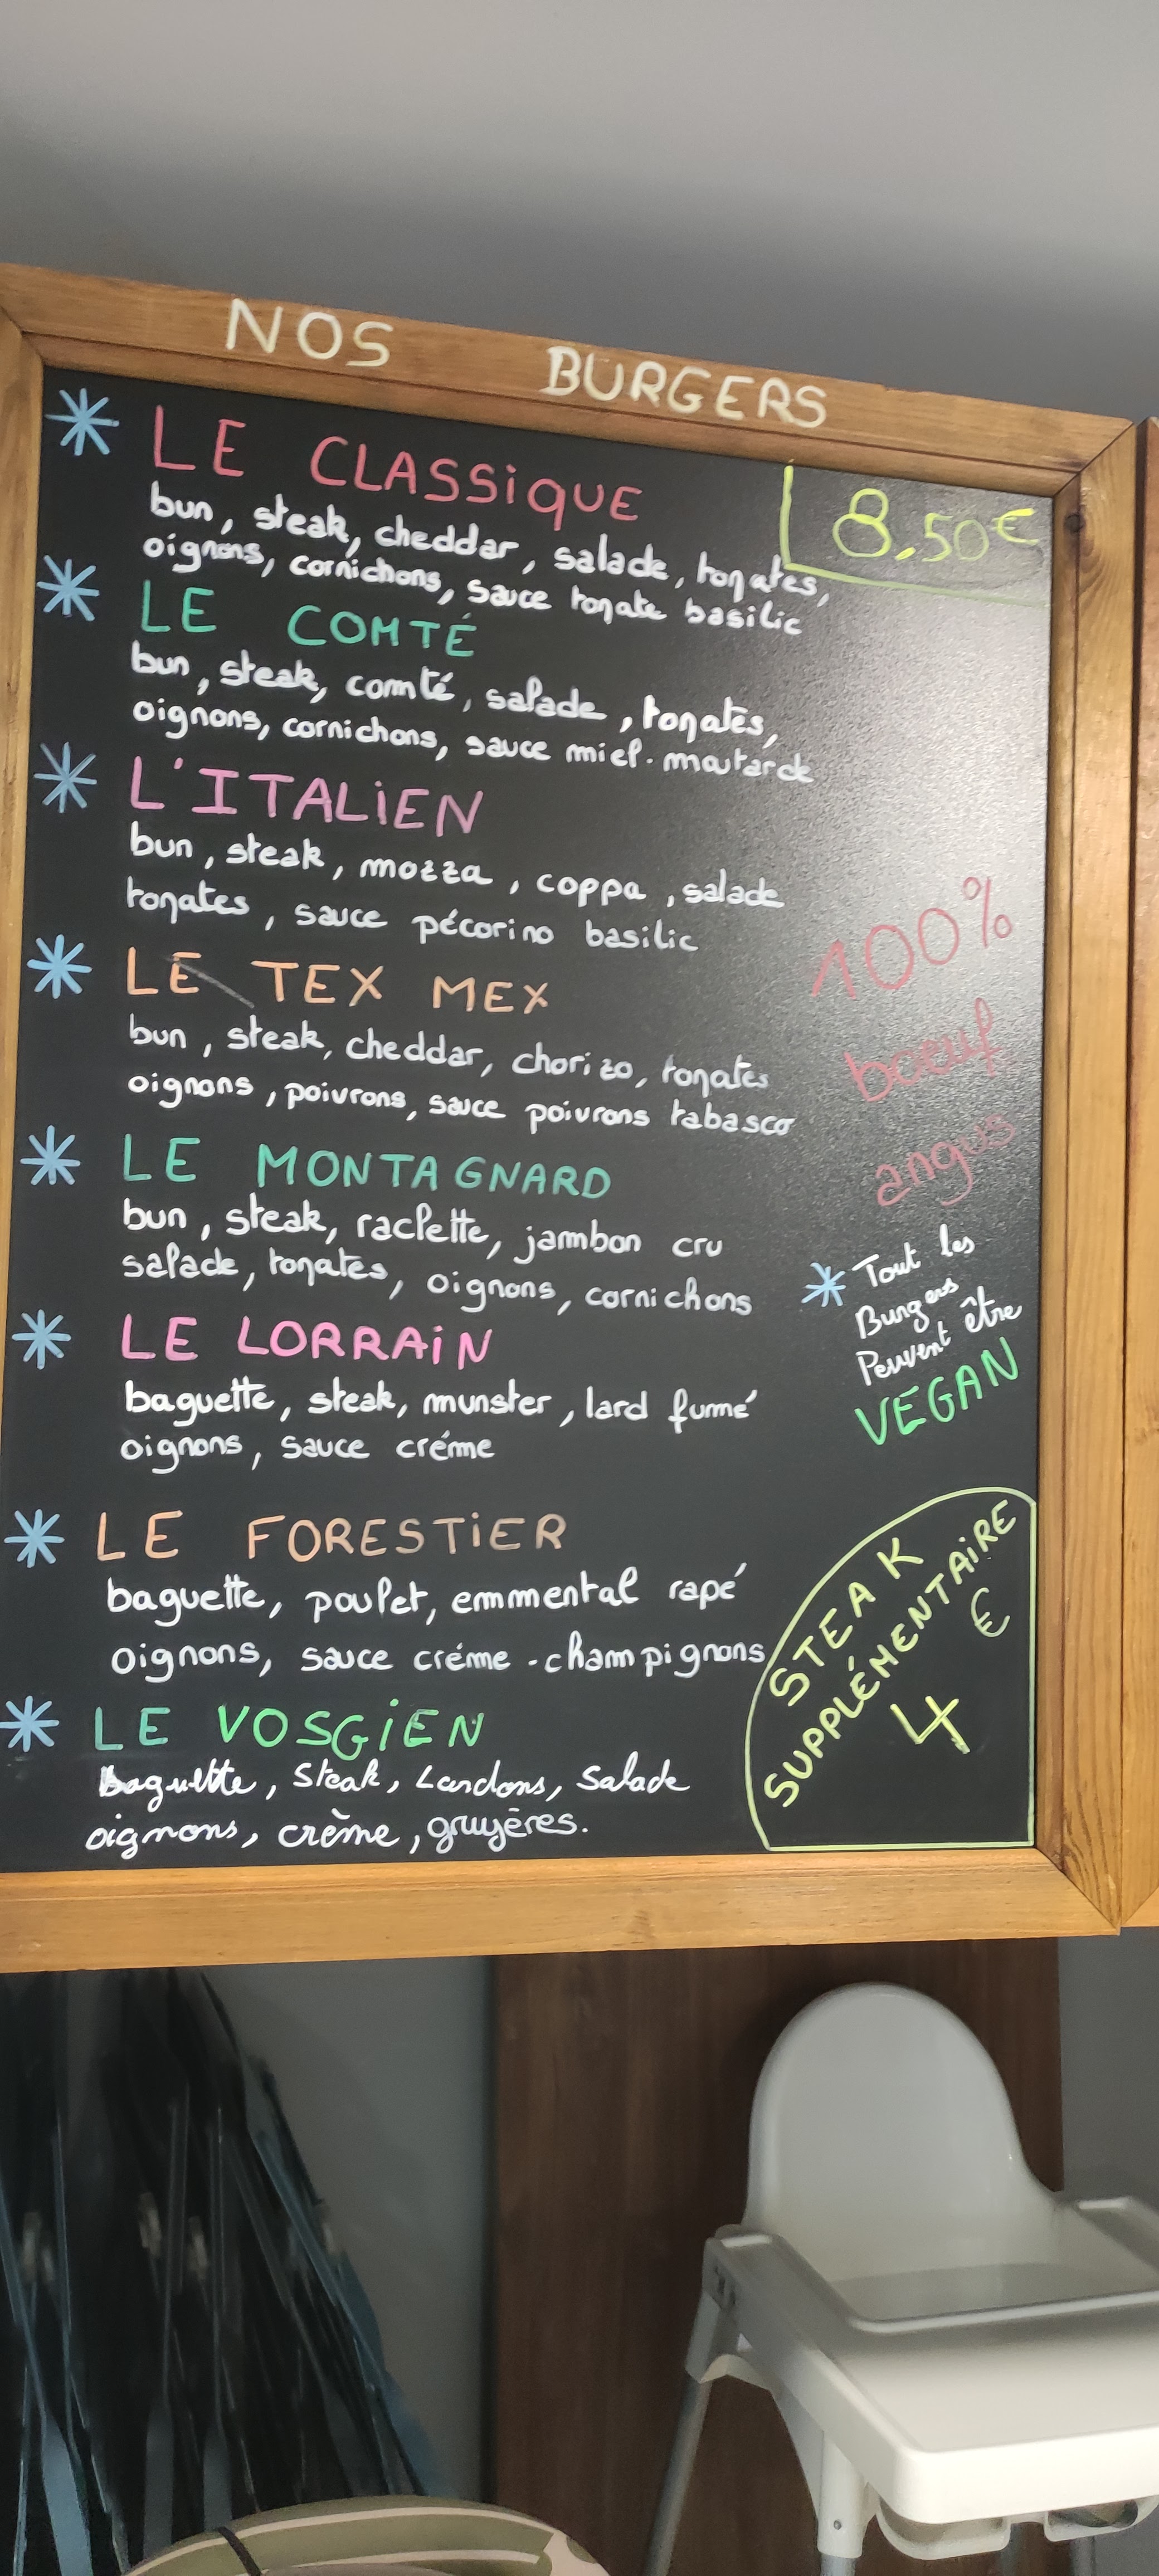 NOS BURGERS
LE CLASSiQUE
8.50€
bun, steak, cheddar, salade, tomates,
oignons, cornichons, sauce tomate basilic
LE COMTÉ
bun, steak, comté, salade, tomates,
oignons, cornichons, sauce miel-moutarde
L'ITALiEN
bun, steak, mozza, coppa, salade
tomates, sauce pécorino basilic
LE TEX MEX
bun, steak, cheddar, chorizo, tomates
oignons, poivrons, sauce poivrons tabasco
LE MONTAGNARD
bun, steak, raclette, jambon cru
salade, tomates, oignons, cornichons
LE LORRAiN
baguette, steak, munster, lard fumé
oignons, sauce créme
LE FORESTiER
baguette, poulet, emmental rapé
oignons, sauce créme-champignons
LE VOSGiEN
Baguette, Steak, Lardons, Salade
oignons, crème, gruyères.
100%
boeuf
angus
* Tout les
Burgers
Peuvent être
VEGAN
STEAK
SUPPLÉMENTAiRE
4 €